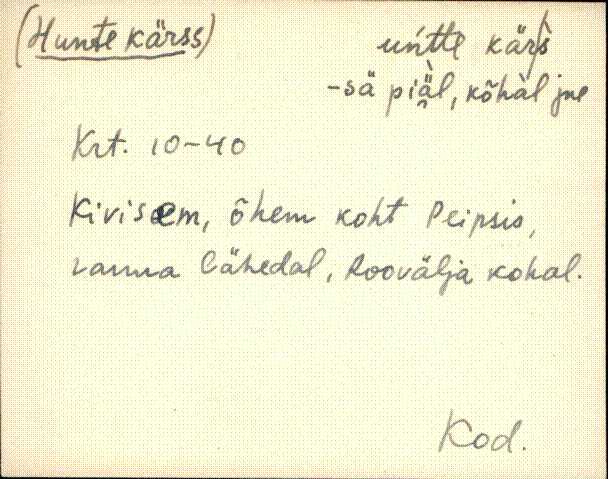 (Hunte kärss) uńtte kärš
-sä piäl, kõhal jne
Krt. 10-40
Kivisem, õhem koht Peipsis,
ranna lähedal, Roovälja kohal.
Kod.